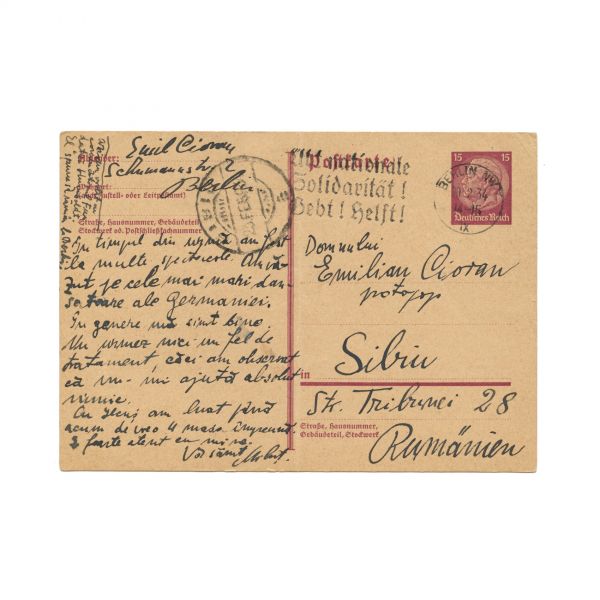 Emil Cioran
Absender:
Schumannstr. 2
Berlin
Wohnort:
Straße, Hausnummer, Gebäudeteil,
Stockwerk od. Postschließfachnummer
În timpul din urmă am fost
la multe spectacole. Am vă-
zut pe cele mai mari dan-
satoare ale Germaniei.
În genere mă simt bine.
Nu urmez nici un fel de
tratament căci am observat
că nu-mi ajută absolut
nimic.
Cu am luat până
acum de vreo 4 masa împreună.
E foarte atent cu mine.
Vă sărut
Postkarte
nationale
Solidarität!
Gebt! Helft!
BERLIN NW
2.34
15 15
Deutsches Reich
Domnului
Emilian Cioran
protopop
in Sibiu
Str. Tribunei 28
Straße, Hausnummer,
Gebäudeteil, Stockwerk
Rumänien